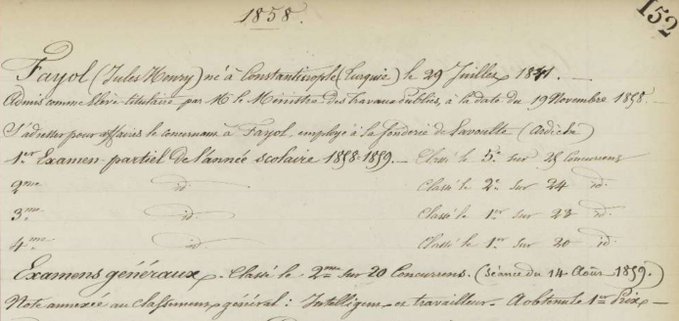 1858.
152
Fayol (Jules Henry) né à Constantinople (Turquie) le 29 Juillet 1841.
Admis comme élève titulaire par M. le Ministre des travaux publics, à la date du 19 Novembre 1858.
S'adresser pour affaires le concernant à Fayol, employé à la fonderie de Lavoulte (Ardèche)
1er Examen partiel de l'année scolaire 1858-1859. Classé le 5e sur 25 Concurrens
2me id. Classé le 2e sur 24 id.
3me id. Classé le 1er sur 23 id.
4me id. Classé le 1er sur 20 id.
Examens généraux. Classé le 2me sur 20 Concurrens. (séance du 14 Août 1859.)
Note annexée au classement général : Intelligent et travailleur. A obtenu le 1er Prix